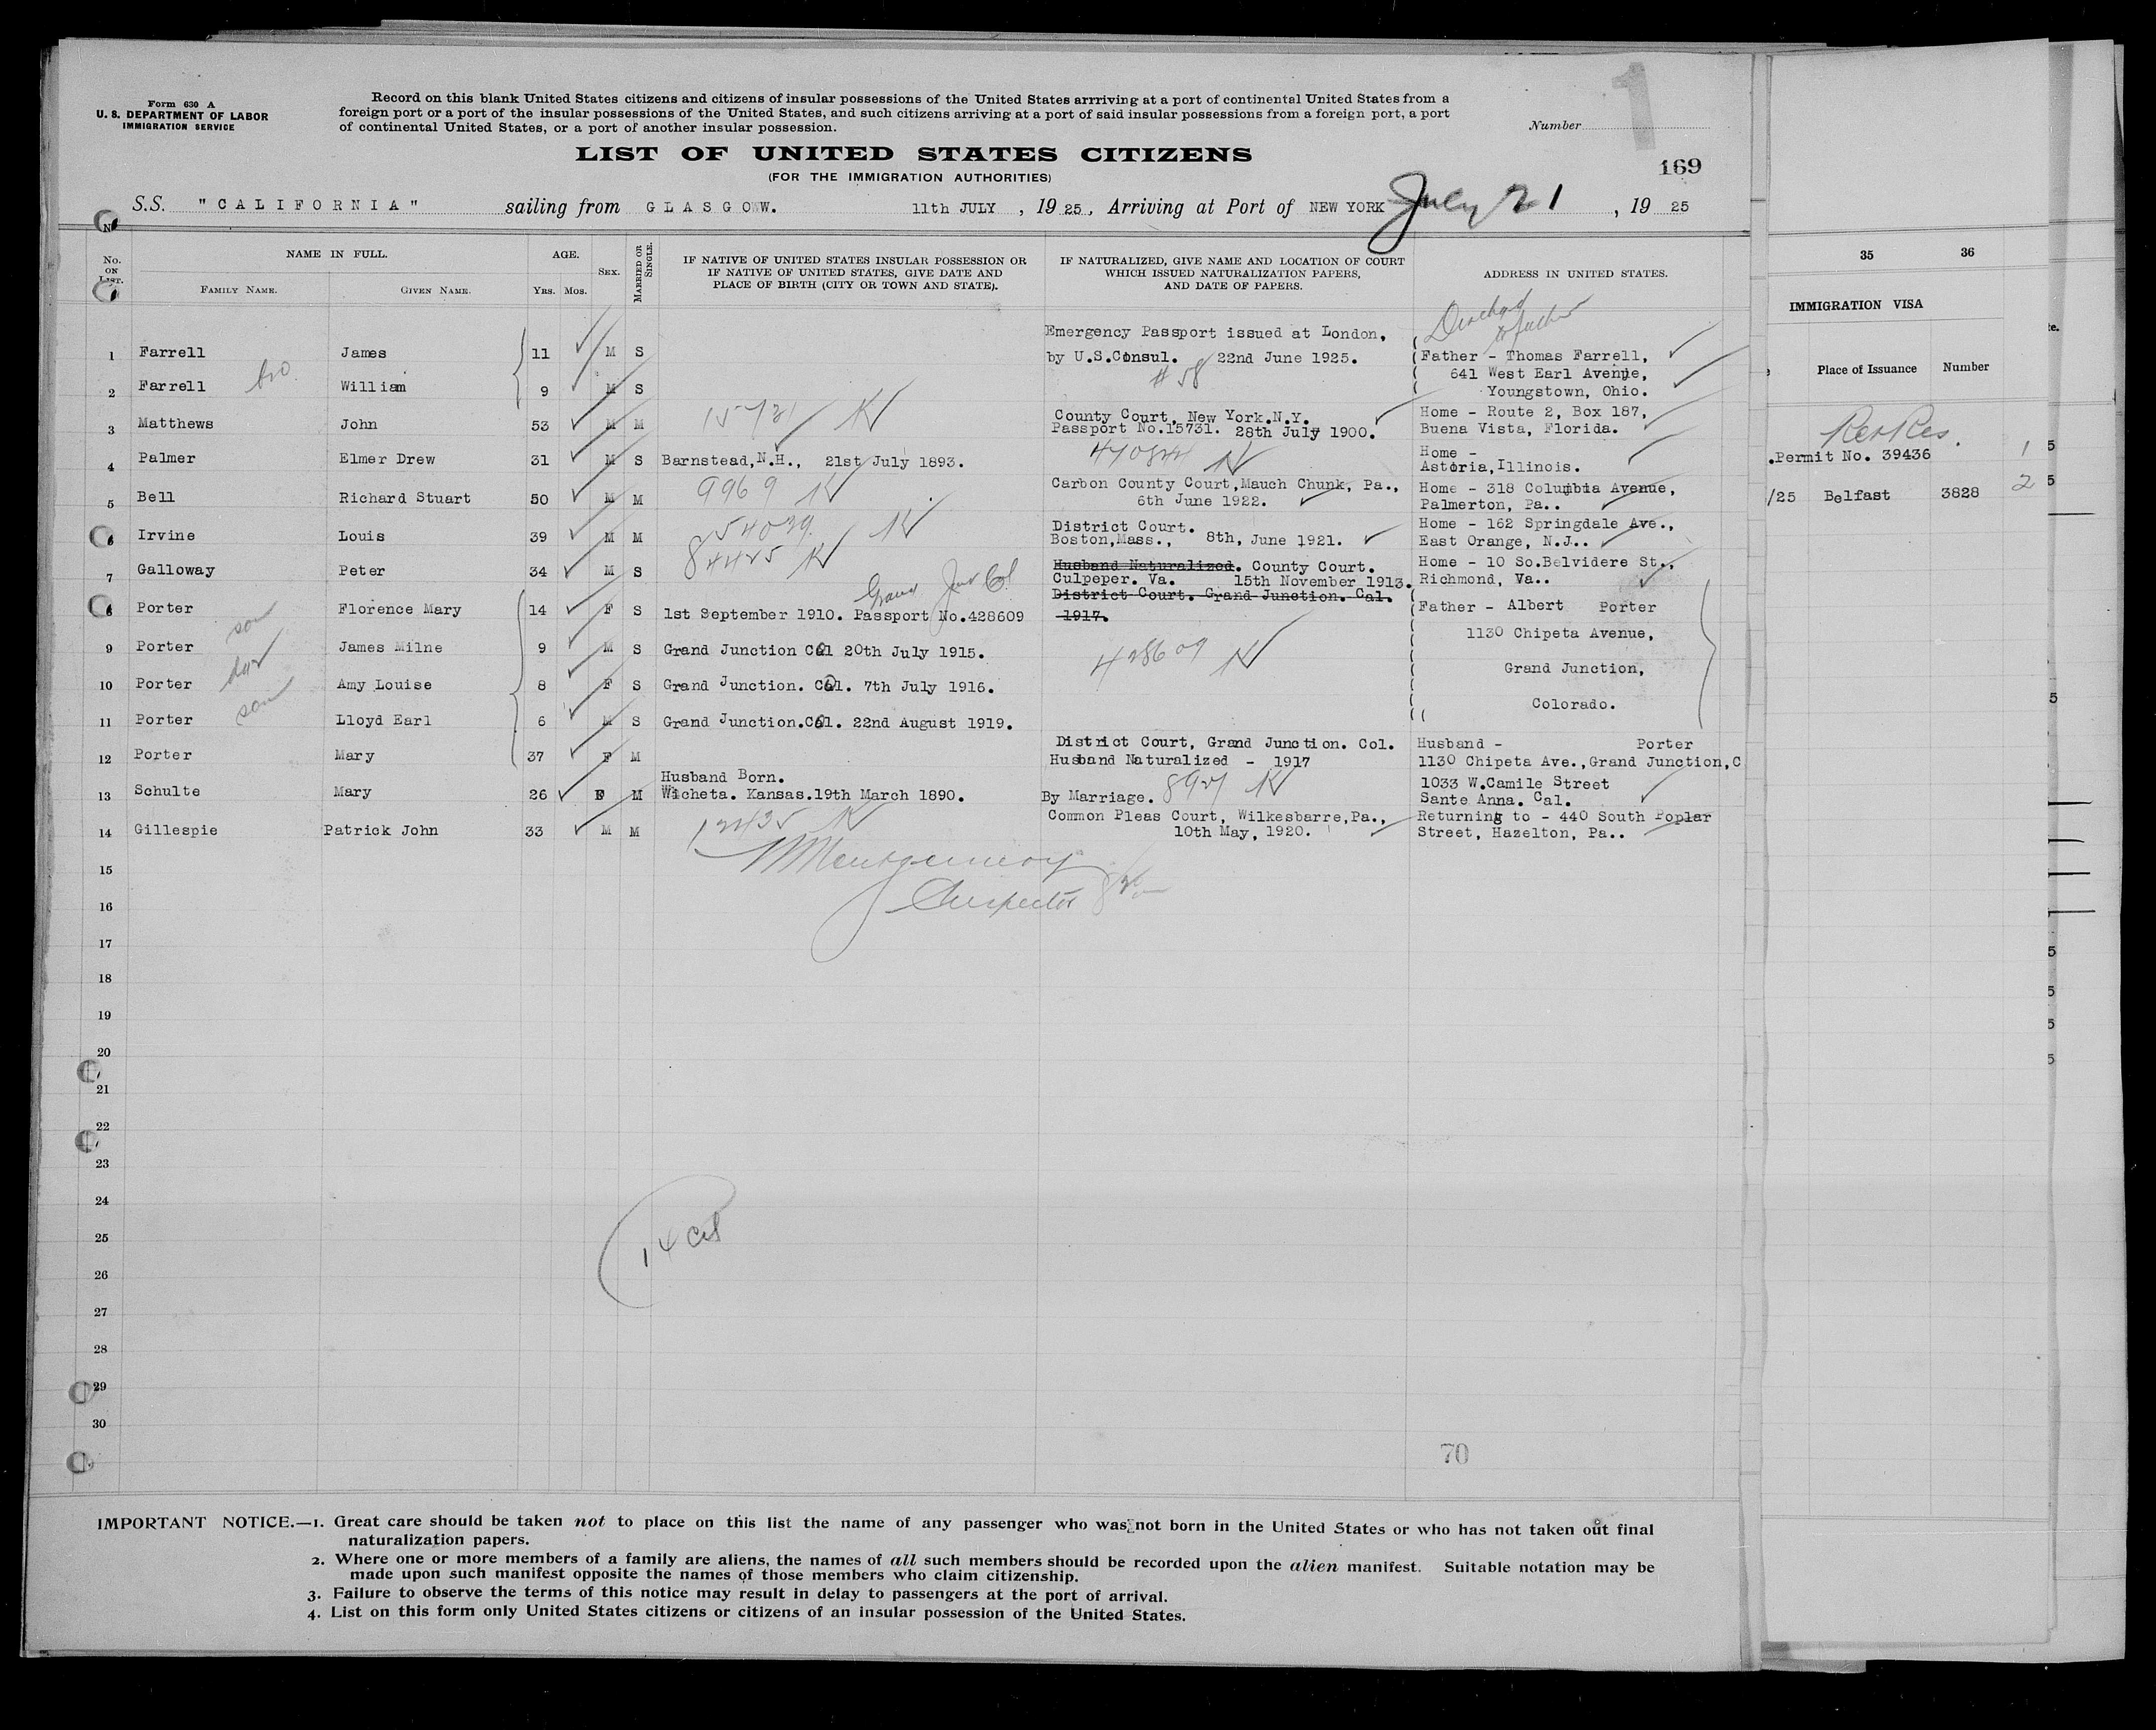 Form 630 A
U. S. DEPARTMENT OF LABOR
IMMIGRATION SERVICE
Record on this blank United States citizens and citizens of insular possessions of the United States arrriving at a port of continental United States from a
foreign port or a port of the insular possessions of the United States, and such citizens arriving at a port of said insular possessions from a foreign port, a port
of continental United States, or a port of another insular possession.
1
Number
LIST OF UNITED STATES CITIZENS
(FOR THE IMMIGRATION AUTHORITIES)
169
S.S. "CALIFORNIA" sailing from GLASGOW. 11th JULY, 1925, Arriving at Port of NEW YORK July 21, 1925
No. ON LIST.
NAME IN FULL.
FAMILY NAME. GIVEN NAME.
AGE.
YRS. MOS.
SEX.
MARRIED OR SINGLE.
IF NATIVE OF UNITED STATES INSULAR POSSESSION OR
IF NATIVE OF UNITED STATES, GIVE DATE AND
PLACE OF BIRTH (CITY OR TOWN AND STATE).
IF NATURALIZED, GIVE NAME AND LOCATION OF COURT
WHICH ISSUED NATURALIZATION PAPERS,
AND DATE OF PAPERS.
ADDRESS IN UNITED STATES.
Discharged
to father
Emergency Passport issued at London,
1 Farrell James 11 M S by U.S.Consul. 22nd June 1925. Father - Thomas Farrell,
641 West Earl Avenue,
2 Farrell bro. William 9 M S # 58 Youngstown, Ohio.
3 Matthews John 53 M M 15731 County Court, New York.N.Y. Home - Route 2, Box 187,
Passport No.15731. 28th July 1900. Buena Vista, Florida.
4 Palmer Elmer Drew 31 M S Barnstead,N.H., 21st July 1893. 470844 Home -
Astoria,Illinois.
5 Bell Richard Stuart 50 M M 9969 Carbon County Court,Mauch Chunk, Pa., Home - 318 Columbia Avenue,
6th June 1922. Palmerton, Pa..
6 Irvine Louis 39 M M 54039 District Court. Home - 162 Springdale Ave.,
Boston,Mass., 8th, June 1921. East Orange, N.J..
7 Galloway Peter 34 M S 84425 Husband Naturalized. County Court. Home - 10 So.Belvidere St.,
Culpeper. Va. 15th November 1913. Richmond, Va..
Grand Jun Col
8 Porter Florence Mary 14 F S 1st September 1910. Passport No.428609 District Court. Grand Junction. Cal. Father - Albert Porter
1917.
son
1130 Chipeta Avenue,
9 Porter James Milne 9 M S Grand Junction Col 20th July 1915. 428609
dar
Grand Junction,
10 Porter Amy Louise 8 F S Grand Junction. Col. 7th July 1916.
son
Colorado.
11 Porter Lloyd Earl 6 M S Grand Junction.Col. 22nd August 1919.
12 Porter Mary 37 F M District Court, Grand Junction. Col. Husband - Porter
Husband Naturalized - 1917 1130 Chipeta Ave.,Grand Junction,C
Husband Born.
13 Schulte Mary 26 F M Wicheta. Kansas.19th March 1890. By Marriage. 8927 1033 W.Camile Street
Sante Anna. Cal.
14 Gillespie Patrick John 33 M M 12435 Common Pleas Court, Wilkesbarre,Pa., Returning to - 440 South Poplar
10th May, 1920. Street, Hazelton, Pa..
Montgomery
Inspector
15
16
17
18
19
20
21
22
23
24
25
14 Cit
26
27
28
29
30
70
IMPORTANT NOTICE.—1. Great care should be taken not to place on this list the name of any passenger who was not born in the United States or who has not taken out final
naturalization papers.
2. Where one or more members of a family are aliens, the names of all such members should be recorded upon the alien manifest. Suitable notation may be
made upon such manifest opposite the names of those members who claim citizenship.
3. Failure to observe the terms of this notice may result in delay to passengers at the port of arrival.
4. List on this form only United States citizens or citizens of an insular possession of the United States.
35 36
IMMIGRATION VISA
Place of Issuance Number
.Permit No. 39436 1 5
/25 Belfast 3828 2 5
te.
5
5
5
5
5